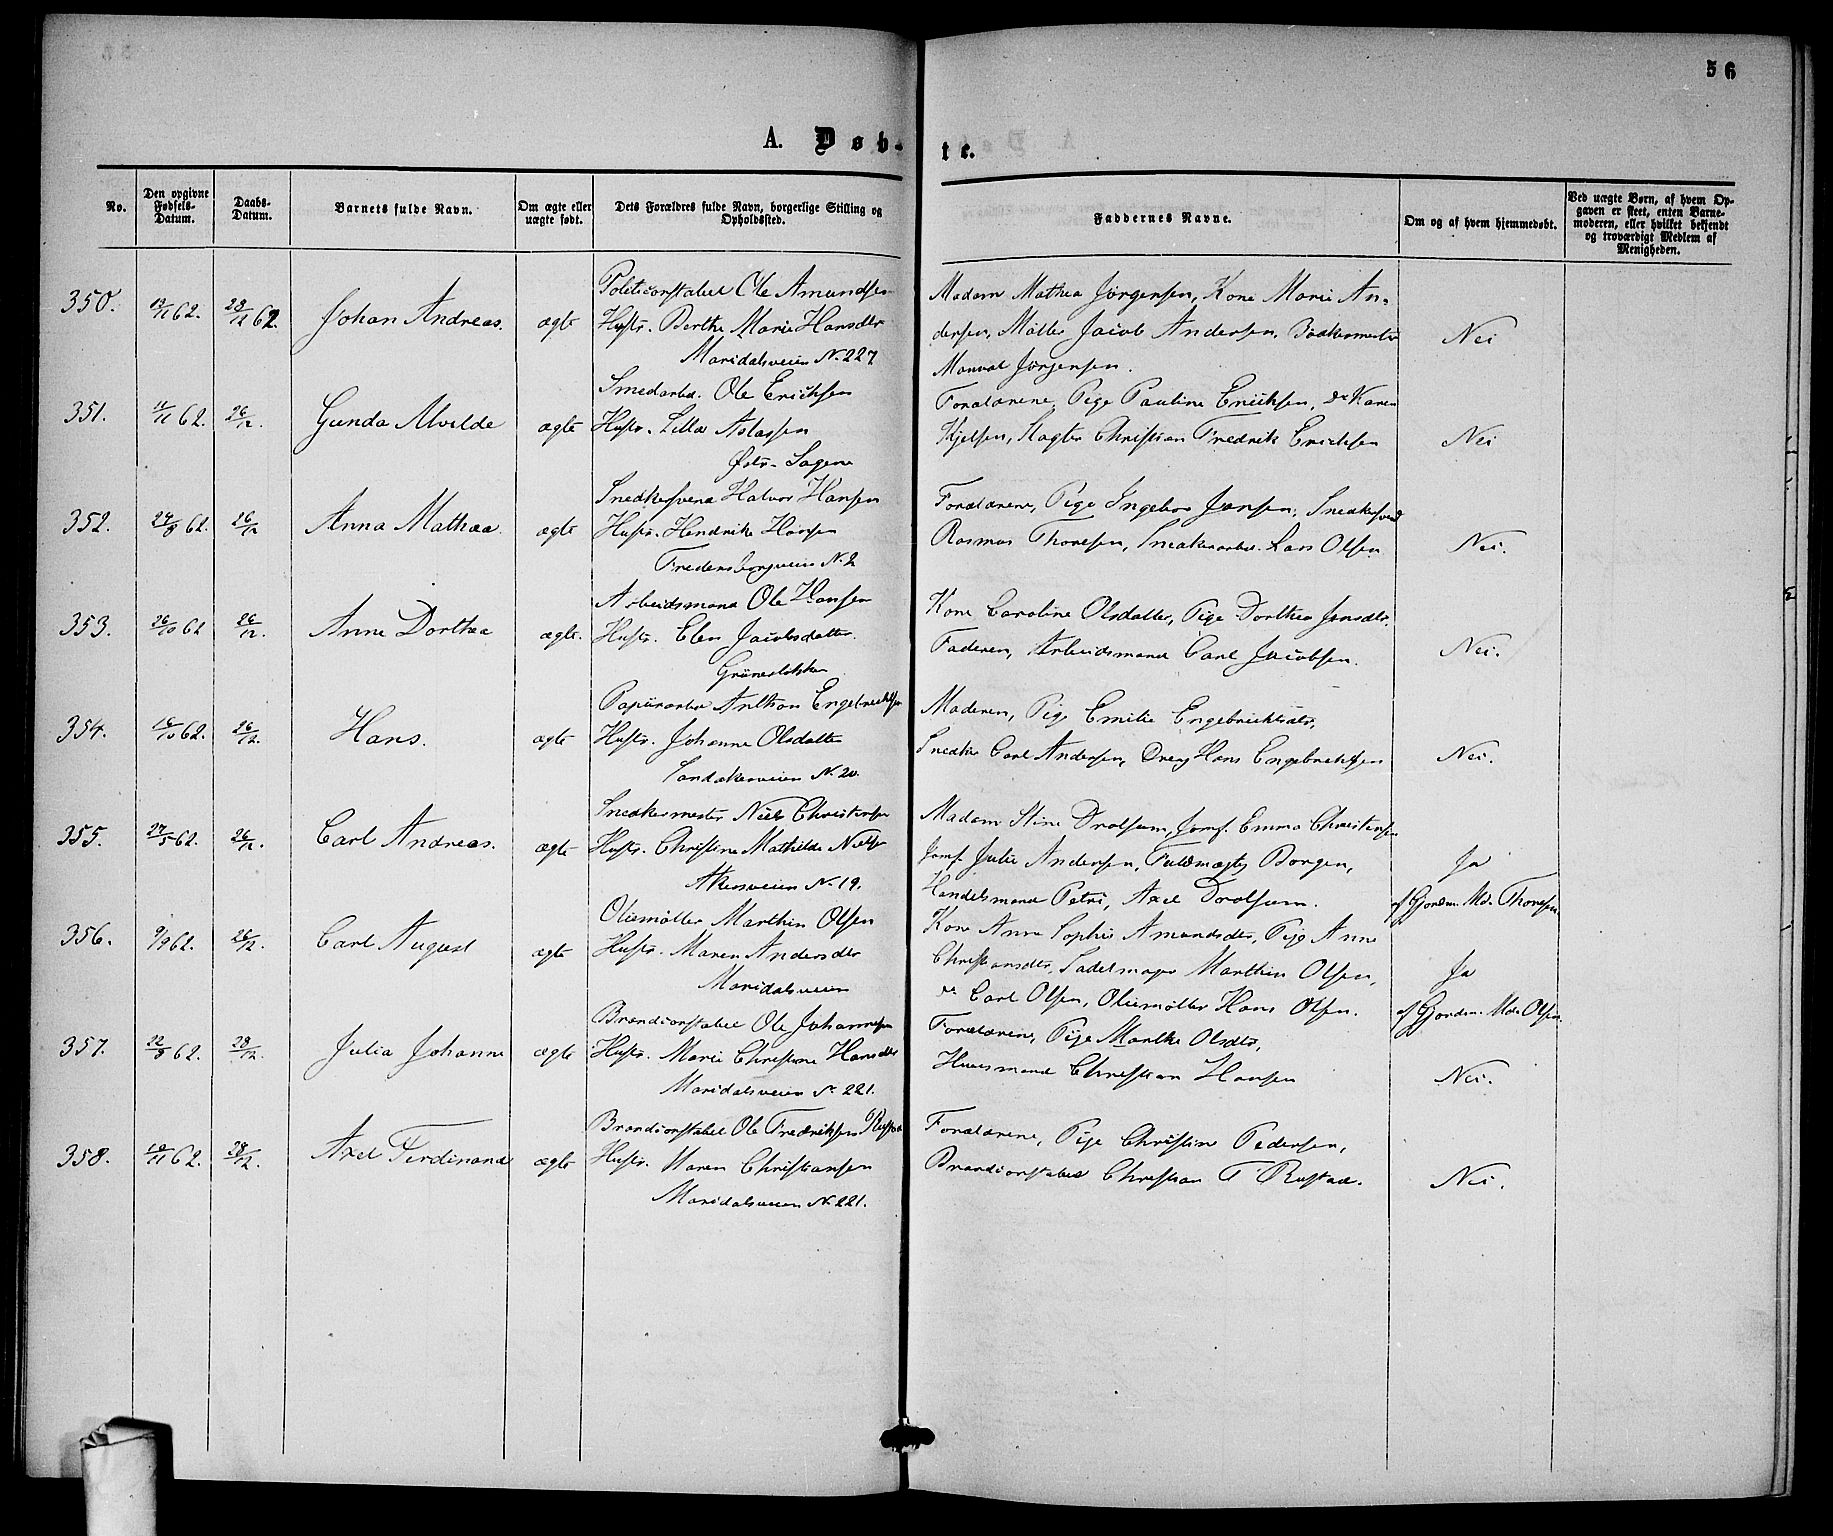 56
A. Døb-
te.
No.
Den opgivne Fødsels-Datum.
Daabs-Datum.
Barnets fulde Navn.
Om ægte eller uægte født.
Dets Forældres fulde Navn, borgerlige Stilling og Opholdssted.
Faddernes Navne.
Om og af hvem hjemmedøbt.
Ved uægte Børn, af hvem Opgaven er skeet, enten Barnemoderen, eller hvilket bekjendt og troværdigt Medlem af Menigheden.
350. 62. 28/12 62. Johan Andreas. ægte
Ole Amundsen
Hustr. Berthe Marie Hansdtr
Maridalsveien N. 227
Madam Mathea Jørgensen, Kone Marie An-
dersen, Møller Jacob Andersen,
Jørgensen.
Nei
351. 11/11 62. 26/12. Gunda Alvilde ægte
Smedarbd. Ole Erichsen
Hustr. Aslassen
Østr. Sagene
Forældrene, Pige Pauline Erichsen, do Karen
Kjelsen, Slagter Christian Fredrik Erichsen
Nei
352. 24/8 62. 26/12 Anna Mathea. ægte
Snedkersvend Halvor Hansen
Hustr. Hendrike Hansen
Fredensborgveien N. 2
Forældrene, Pige Ingebor Jansen, Snedkersvend
Rasmus Thoresen, Snedkerarbd. Lars Olsen
Nei.
353. 26/10 62 26/12. Anne Dorthea ægte.
Arbeidsmand Ole Hansen
Hustr. Elen Jacobsdatter.
Grünerløkken
Kone Caroline Olsdatter, Pige Dorthea Jansdtr.
Faderen, Arbeidsmand Carl Jacobsen.
Nei.
354. 16/10 62. 26/12. Hans. ægte
Papirarbd Anthon Engebrechtsen
Hustr. Johanne Olsdatter
Sandakerveien N. 20.
Moderen, Pige Emilie Engebrichtsdtr,
Snedker Carl Andersen, Dreng Hans Engebrechtsen
Nei.
355. 27/5 62. 26/12. Carl Andreas. ægte
Snedkermester Niels Christensen
Hustr. Christine Mathilde
Akersveien N. 19.
Madam Stine Drolsum, Jomf. Emma Christensen
Jomf. Julie Andersen, Fuldmægtig Borgen,
Handelsmand Petri, Axel Drolsum.
Ja
af Gjordm. Md. Thoresen
356. 9/9 62. 26/12. Carl August ægte
Oliemøller Marthin Olsen
Hustr. Maren Andersdtr
Maridalsveien
Kone Anne Sophie Amundsdtr, Pige Anne
Christiansdtr, Sadelmager Marthin Olsen,
do Carl Olsen, Oliemøller Hans Olsen.
Ja
af Gjordm. Md. Olsen.
357. 22/8 62. 28/12. Julia Johanne ægte
Brandconstabel Ole Johannesen
Hustr. Marie Christine Hansdtr
Maridalsveien N. 221.
Forældrene, Pige Marthe Olsdtr,
Huusmand Christian Hansen
Nei.
358. 62. 28/12. Axel Ferdinand ægte
Brandconstabel Ole Fredriksen Rustad
Hustr. Maren Christiansen
Maridalsveien N. 221.
Forældrene, Pige Christine Pedersen,
Brandconstabel Christian F Rustad.
Nei.